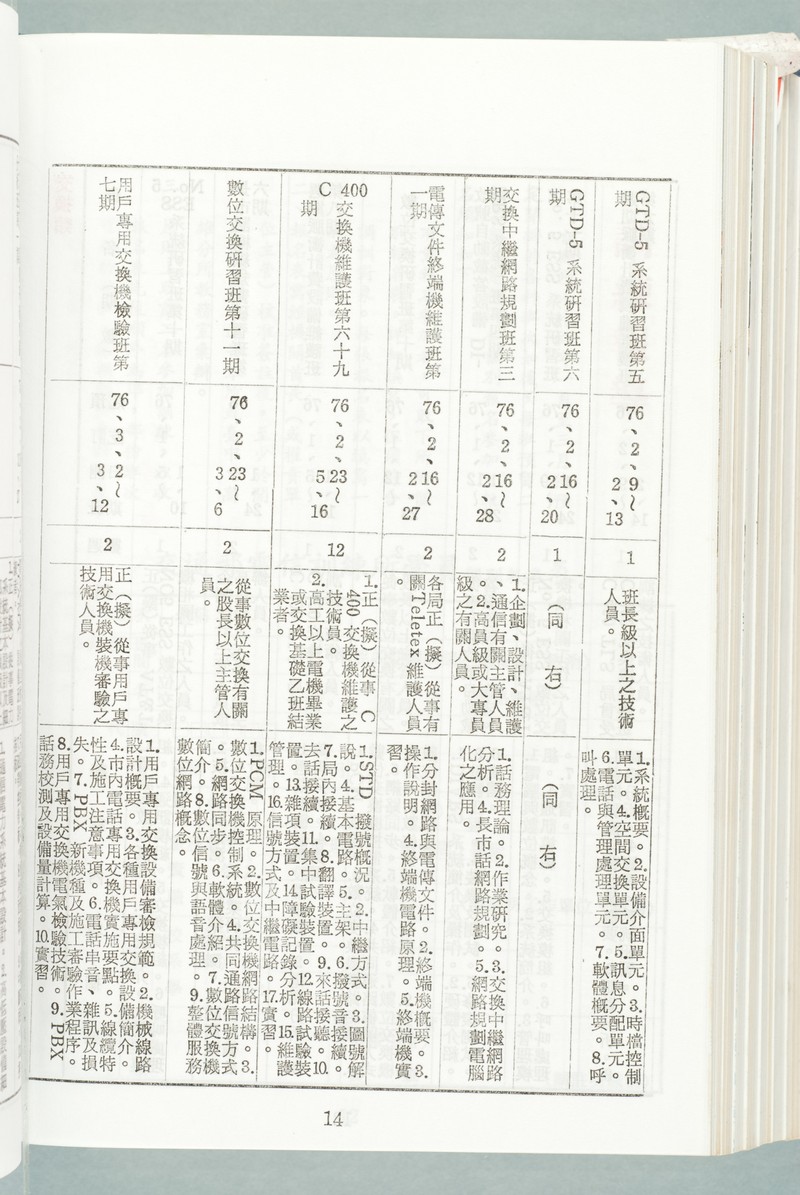 GTD-5 系統研習班第五
期
76、2、9~
2、13
1
班長級以上之技術
人員。
1.系統概要。2.設備介面單元。3.時檔控制
單元。4.空間交換單元。5.訊息分配單元。
6.電話與管理處理單元。7.軟體概要。8.呼
叫處理。
GTD-5 系統研習班第六
期
76、2、16~
2、20
1
(同 右)
(同 右)
交換中繼網路規劃班第三
期
76、2、16~
2、28
2
1.企劃、設計、維護
、通信有關主管人員
。2.高員級或大專員
級之有關人員。
1.話務理論。2.作業研究。3.交換中繼網路
分析。4.長市話網路規劃。5.網路規劃電腦
化之應用。
電傳文件終端機維護班第
一期
76、2、16~
2、27
2
各局正(擬)從事有
關Teletex 維護人員
。
1.分封網路與電傳文件。2.終端機概要。3.
操作說明。4.終端機電路原理。5.終端機實
習。
C 400 交換機維護班第六十九
期
76、2、23~
5、16
12
1.正(擬)從事 C
400 交換機維護之
技術員。
2.高工以上電機畢業
或交換基礎乙班結
業者。
1.STD 撥號概況。2.中繼方式。3.圖號解
說。4.基本電路。5.主架。6.撥號音接續。
7.局內接續。8.翻譯裝置。9.來話接聽。10.
去話接續。11.集中試驗裝置。12.線路試驗裝
置。13.雜項裝置。14.障礙記錄分析。15.維護
管理。16.信號方式及中繼電路。17.實習。
數位交換研習班第十一期
76、2、23~
3、6
2
從事數位交換有關
之股長以上主管人
員。
1.PCM 原理。2.數位交換機網路結構。3.
數位交換機控制系統。4.共同通路信號方式
。5.網路同步。6.軟體介紹。7.數位交換機
簡介。8.數位信號與語音處理。9.整體服務
數位網路概念。
用戶專用交換機檢驗班第
七期
76、3、2~
3、12
2
正(擬)從事用戶專
用交換機裝機審驗之
技術人員。
1.用戶專用交換設備審檢規範。2.機械線路
設計概要。3.各種用戶專用交換設備簡介。
4.市內電話專用交換機實施要點。5.線纜特
性及施工注意事項。6.電話串音、雜訊及損
失。7.PBX 新機種及施工審驗作業程序。
8.用戶專用交換機電氣檢驗技術。9.PBX
話務校測及設備量計算。10.實習。
14